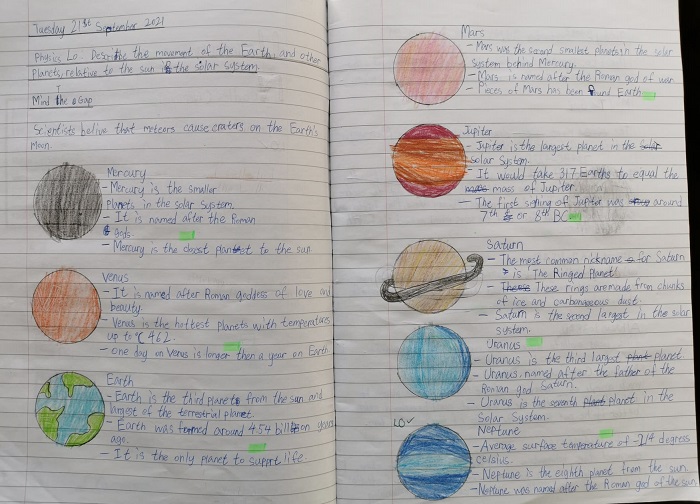 Tuesday 21st September 2021
Physics Lo Describe the movement of the Earth, and other
Planets, relative to the sun the solar system.
Mind the Gap
Scientists belive that meteors cause craters on the Earth's
Moon.
Mercury
- Mercury is the smaller
Planets in the solar system.
- It is named after the Roman
Gods.
- Mercury is the closest planet to the sun
Venus
- It is named after Roman goddess of love and
beauty.
- Venus is the hottest planets with temperatures
up to °C 462.
- one day on Venus is longer then a year on Earth
Earth
- Earth is the third planet from the sun and
largest of the terrestrial planet.
- Earth was formed around 4.54 billion years
ago.
- It is the only planet to support life
Mars
- Mars was the second smallest planets in the solar
system behind Mercury.
- Mars is named after the Roman god of war
- Pieces of Mars has been found Earth
Jupiter
- Jupiter is the largest planet in the solar
solar System.
- It would take 317 Earths to equal the
mass mass of Jupiter
- The first sighing of Jupiter was around
7th or 8th BC
Saturn
- The most common nickname for Saturn
is 'The Ringed Planet'
- These rings are made from chunks
of ice and carbonaceous dust.
- Saturn is the second largest in the solar
system.
Uranus
- Uranus is the third largest planet
- Uranus named after the father of the
Roman god Saturn.
- Uranus is the seventh planet in the
Solar System.
LO✓
Neptune
- Average surface temperature of -214 degress
celsius.
- Neptune is the eighth planet from the sun
- Neptune was named after the Roman god of the sun